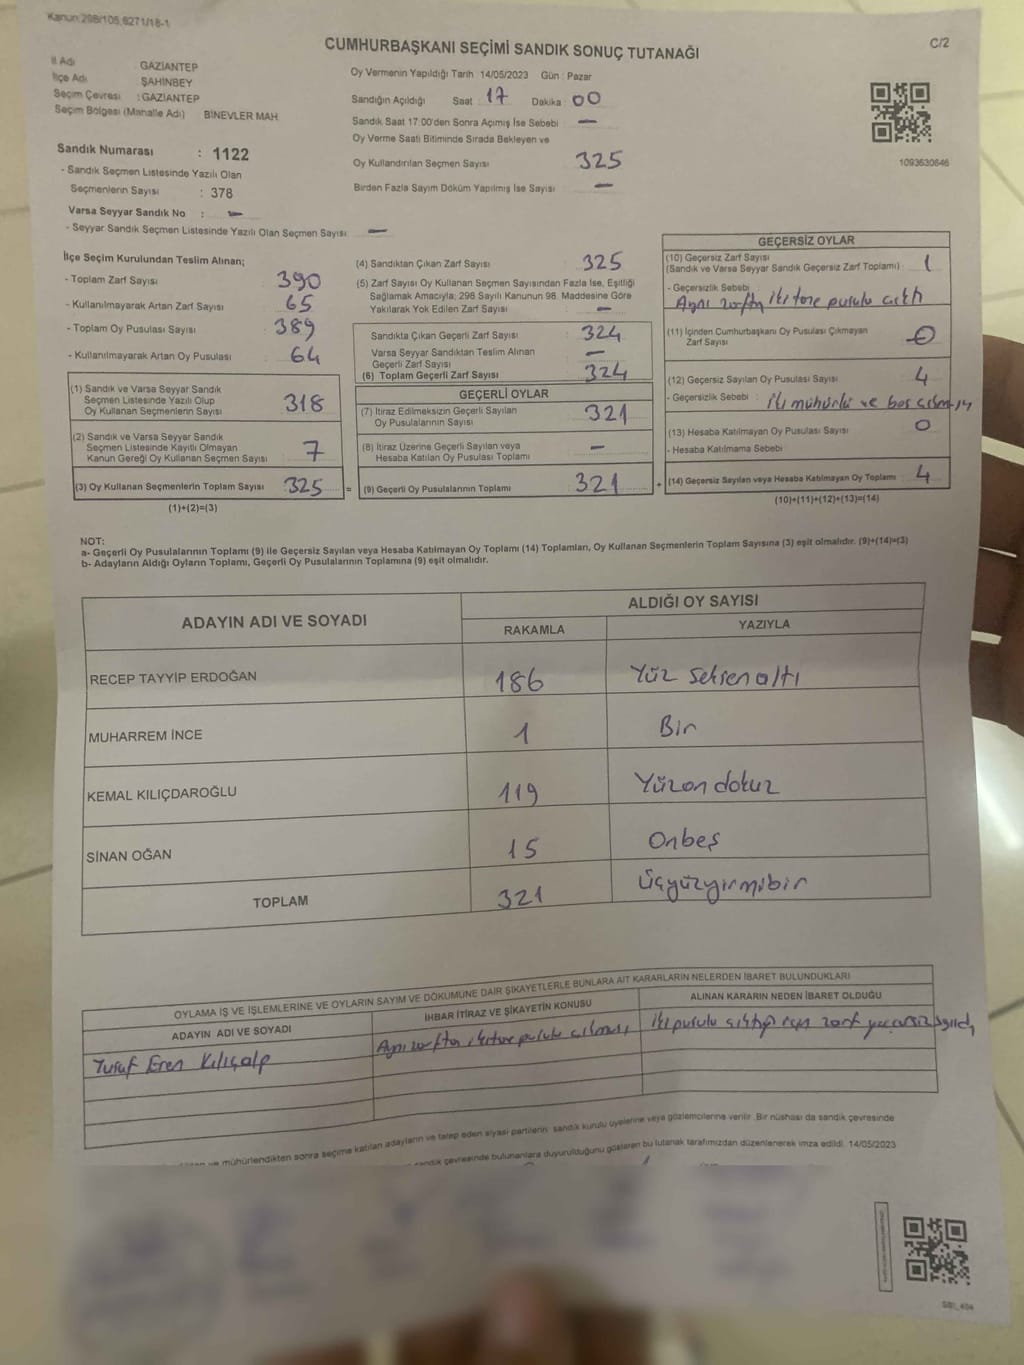 Kanun:298/105;6271/18-1
C/2
CUMHURBAŞKANI SEÇİMİ SANDIK SONUÇ TUTANAĞI
İl Adı : GAZİANTEP
İlçe Adı : ŞAHİNBEY
Seçim Çevresi : GAZİANTEP
Seçim Bölgesi (Mahalle Adı) BİNEVLER MAH.
Sandık Numarası : 1122
- Sandık Seçmen Listesinde Yazılı Olan
Seçmenlerin Sayısı : 378
Varsa Seyyar Sandık No : -
- Seyyar Sandık Seçmen Listesinde Yazılı Olan Seçmen Sayısı: -
Oy Vermenin Yapıldığı Tarih 14/05/2023 Gün : Pazar
Sandığın Açıldığı Saat 17 Dakika 00
Sandık Saat 17:00'den Sonra Açılmış İse Sebebi : -
Oy Verme Saati Bitiminde Sırada Bekleyen ve
Oy Kullandırılan Seçmen Sayısı 325
Birden Fazla Sayım Döküm Yapılmış İse Sayısı : -
1093630646
İlçe Seçim Kurulundan Teslim Alınan;
- Toplam Zarf Sayısı : 390
- Kullanılmayarak Artan Zarf Sayısı : 65
- Toplam Oy Pusulası Sayısı : 389
- Kullanılmayarak Artan Oy Pusulası : 64
(1) Sandık ve Varsa Seyyar Sandık
Seçmen Listesinde Yazılı Olup
Oy Kullanan Seçmenlerin Sayısı : 318
(2) Sandık ve Varsa Seyyar Sandık
Seçmen Listesinde Kayıtlı Olmayan
Kanun Gereği Oy Kullanan Seçmen Sayısı : 7
(3) Oy Kullanan Seçmenlerin Toplam Sayısı : 325
(1)+(2)=(3)
(4) Sandıktan Çıkan Zarf Sayısı : 325
(5) Zarf Sayısı Oy Kullanan Seçmen Sayısından Fazla İse, Eşitliği
Sağlamak Amacıyla; 298 Sayılı Kanunun 98. Maddesine Göre
Yakılarak Yok Edilen Zarf Sayısı : -
Sandıkta Çıkan Geçerli Zarf Sayısı : 324
Varsa Seyyar Sandıktan Teslim Alınan
Geçerli Zarf Sayısı : -
(6) Toplam Geçerli Zarf Sayısı : 324
GEÇERLİ OYLAR
(7) İtiraz Edilmeksizin Geçerli Sayılan
Oy Pusulalarının Sayısı : 321
(8) İtiraz Üzerine Geçerli Sayılan veya
Hesaba Katılan Oy Pusulası Toplamı : -
= (9) Geçerli Oy Pusulalarının Toplamı : 321
GEÇERSİZ OYLAR
(10) Geçersiz Zarf Sayısı
(Sandık ve Varsa Seyyar Sandık Geçersiz Zarf Toplamı) : 1
- Geçersizlik Sebebi :
Aynı zarftan iki tane pusula çıktı
(11) İçinden Cumhurbaşkanı Oy Pusulası Çıkmayan
Zarf Sayısı : 0
(12) Geçersiz Sayılan Oy Pusulası Sayısı : 4
- Geçersizlik Sebebi : iki mühürlü ve boş
(13) Hesaba Katılmayan Oy Pusulası Sayısı : 0
- Hesaba Katılmama Sebebi
+ (14) Geçersiz Sayılan veya Hesaba Katılmayan Oy Toplamı : 4
(10)+(11)+(12)+(13)=(14)
NOT:
a- Geçerli Oy Pusulalarının Toplamı (9) ile Geçersiz Sayılan veya Hesaba Katılmayan Oy Toplamı (14) Toplamları, Oy Kullanan Seçmenlerin Toplam Sayısına (3) eşit olmalıdır. (9)+(14)=(3)
b- Adayların Aldığı Oyların Toplamı, Geçerli Oy Pusulalarının Toplamına (9) eşit olmalıdır.
ADAYIN ADI VE SOYADI
ALDIĞI OY SAYISI
RAKAMLA YAZIYLA
RECEP TAYYİP ERDOĞAN 186 Yüz Seksen altı
MUHARREM İNCE 1 Bir
KEMAL KILIÇDAROĞLU 119 Yüzon dokuz
SİNAN OĞAN 15 Onbeş
TOPLAM 321 Üçyüzyirmibir
OYLAMA İŞ VE İŞLEMLERİNE VE OYLARIN SAYIM VE DÖKÜMÜNE DAİR ŞİKAYETLERLE BUNLARA AİT KARARLARIN NELERDEN İBARET BULUNDUKLARI
ADAYIN ADI VE SOYADI İHBAR İTİRAZ VE ŞİKAYETİN KONUSU ALINAN KARARIN NEDEN İBARET OLDUĞU
Yusuf Eren Kılıçalp Aynı zarftan iki tane pusula çıkması iki pusula çıktığı için zarf
ve mühürlendikten sonra seçime katılan adayların ve talep eden siyasi partilerin sandık kurulu üyelerine veya gözlemcilerine verilir. Bir nüshası da sandık çevresinde
sandık çevresinde bulunanlara duyurulduğunu gösteren bu tutanak tarafımızdan düzenlenerek imza edildi. 14/05/2023